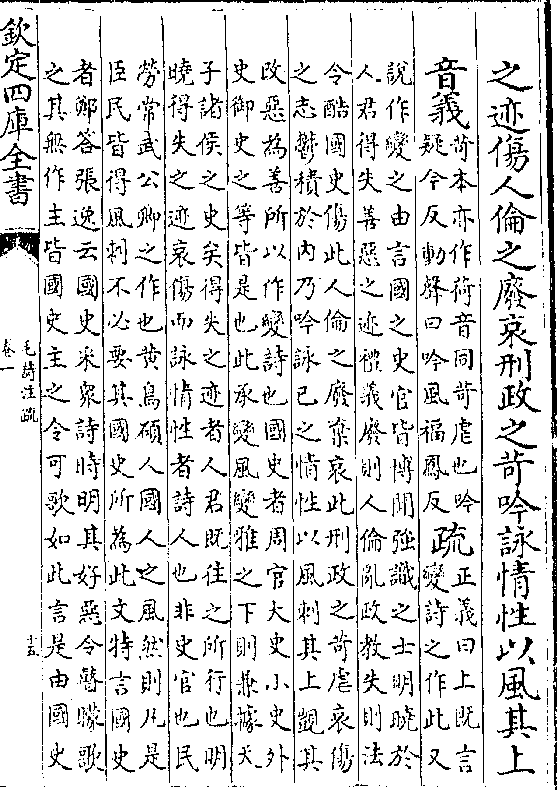 之迹傷人倫之廢哀刑政之苛吟詠情性以風其上
音義
苛本亦作荷音同苛虐也吟
疑今反動聲曰吟風福鳳反
疏
正義曰上既言
變詩之作此又
說作變之由言國之史官皆博聞強識之士明曉於
人君得失善惡之迹禮義廢則人倫亂政教失則法
令酷國史傷此人倫之廢棄哀此刑政之苛虐哀傷
之志鬱積於內乃吟詠己之情性以風刺其上覬其
改惡為善所以作變詩也國史者周官大史小史外
史御史之等皆是也此承變風變雅之下則兼據天
子諸侯之史矣得失之迹者人君既往之所行也明
曉得失之迹哀傷而詠情性者詩人也非史官也民
勞常武公卿之作也黄鳥碩人國人之風然則凡是
臣民皆得風刺不必要其國史所為此文特言國史
者鄭荅張逸云國史采衆詩時明其好惡令瞽矇歌
之其無作主皆國史主之令可歌如此言是由國史
欽定四庫全書
毛詩注疏
卷一
十五